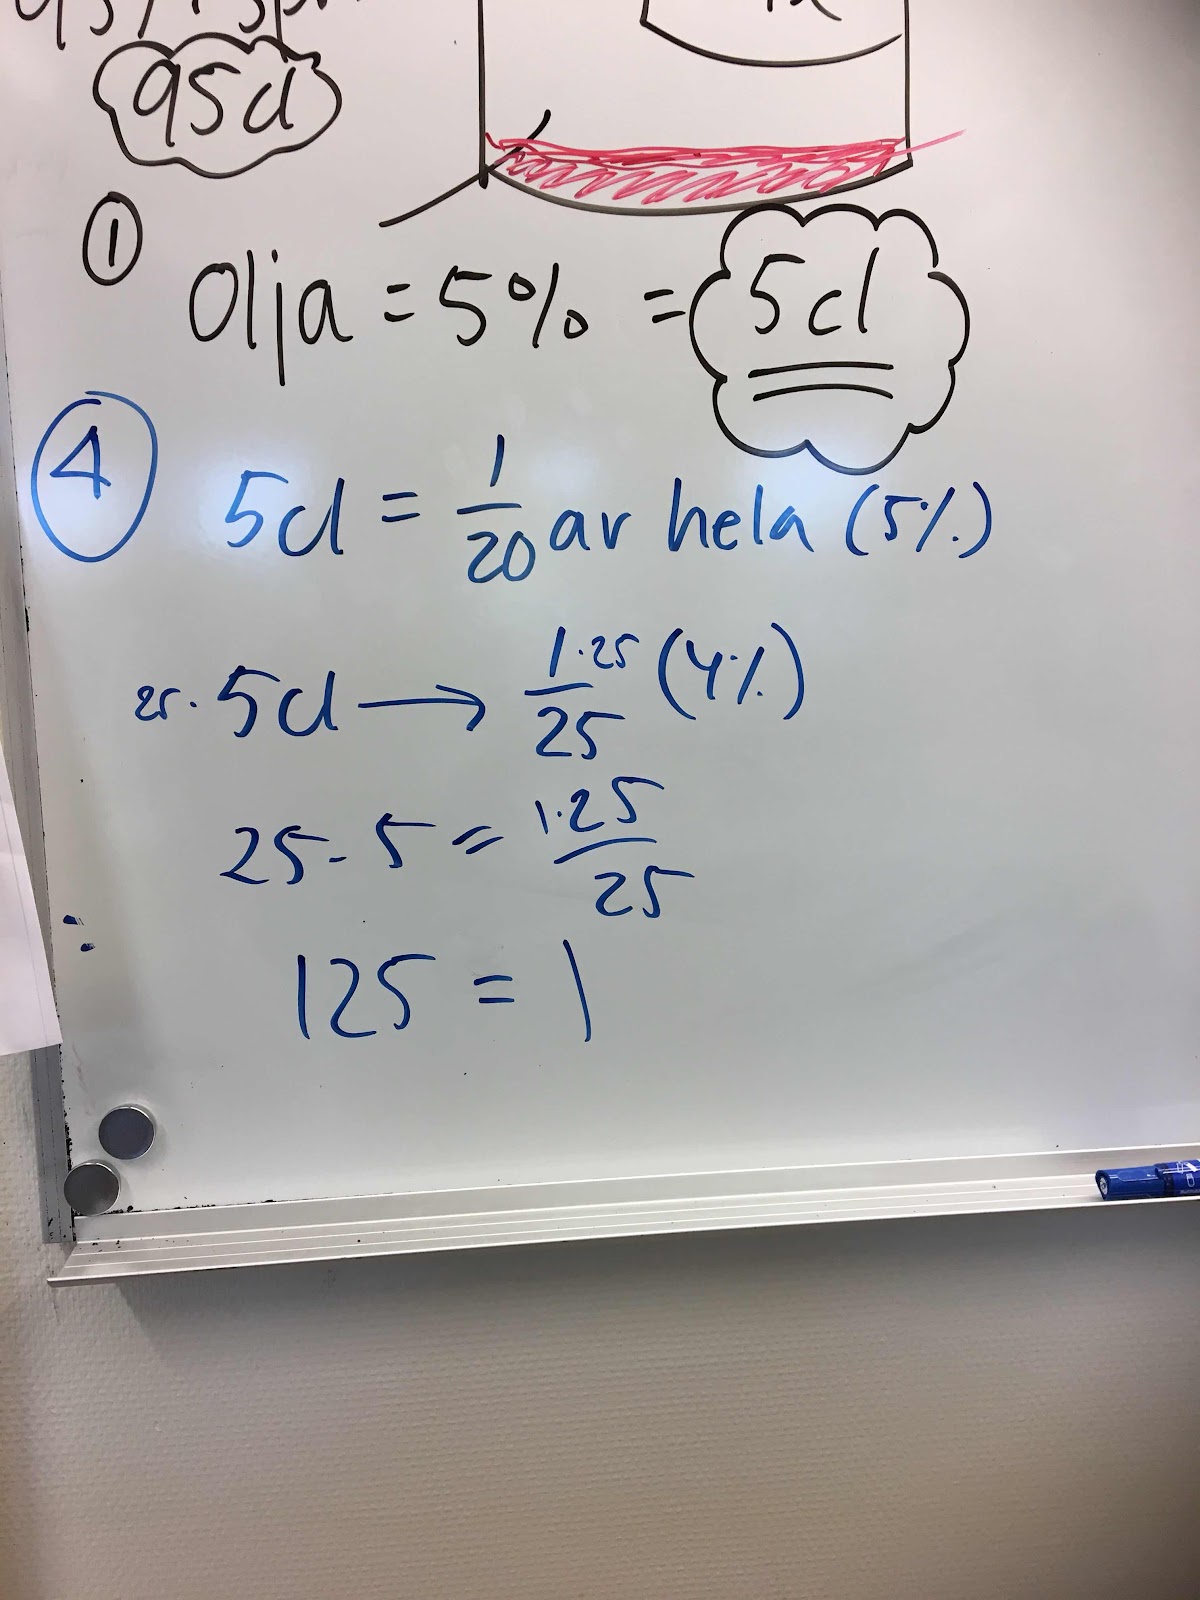 95cl
①
Olja = 5% = 5cl
④
5cl = 1/20 av hela (5%)
25· 5cl → 1·25/25 (4%)
25· 5 = 1·25/25
125 = 1